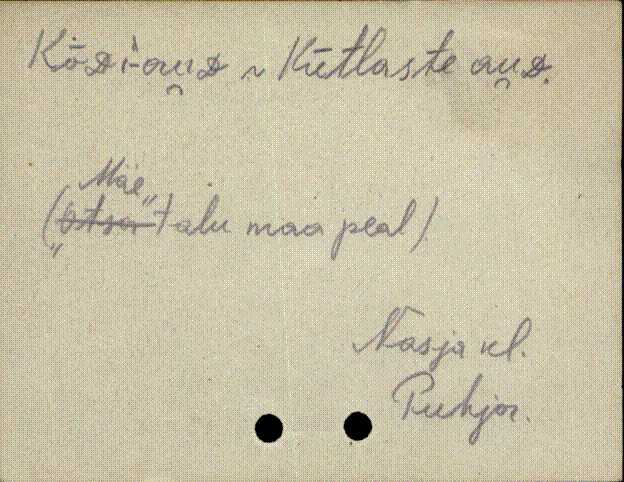 Kõᴅi-au̯ᴅ ~ Kūtlaste au̯ᴅ.
Mäe
("Otsa" talu maa peal)
Nasja kl.
Puhja.